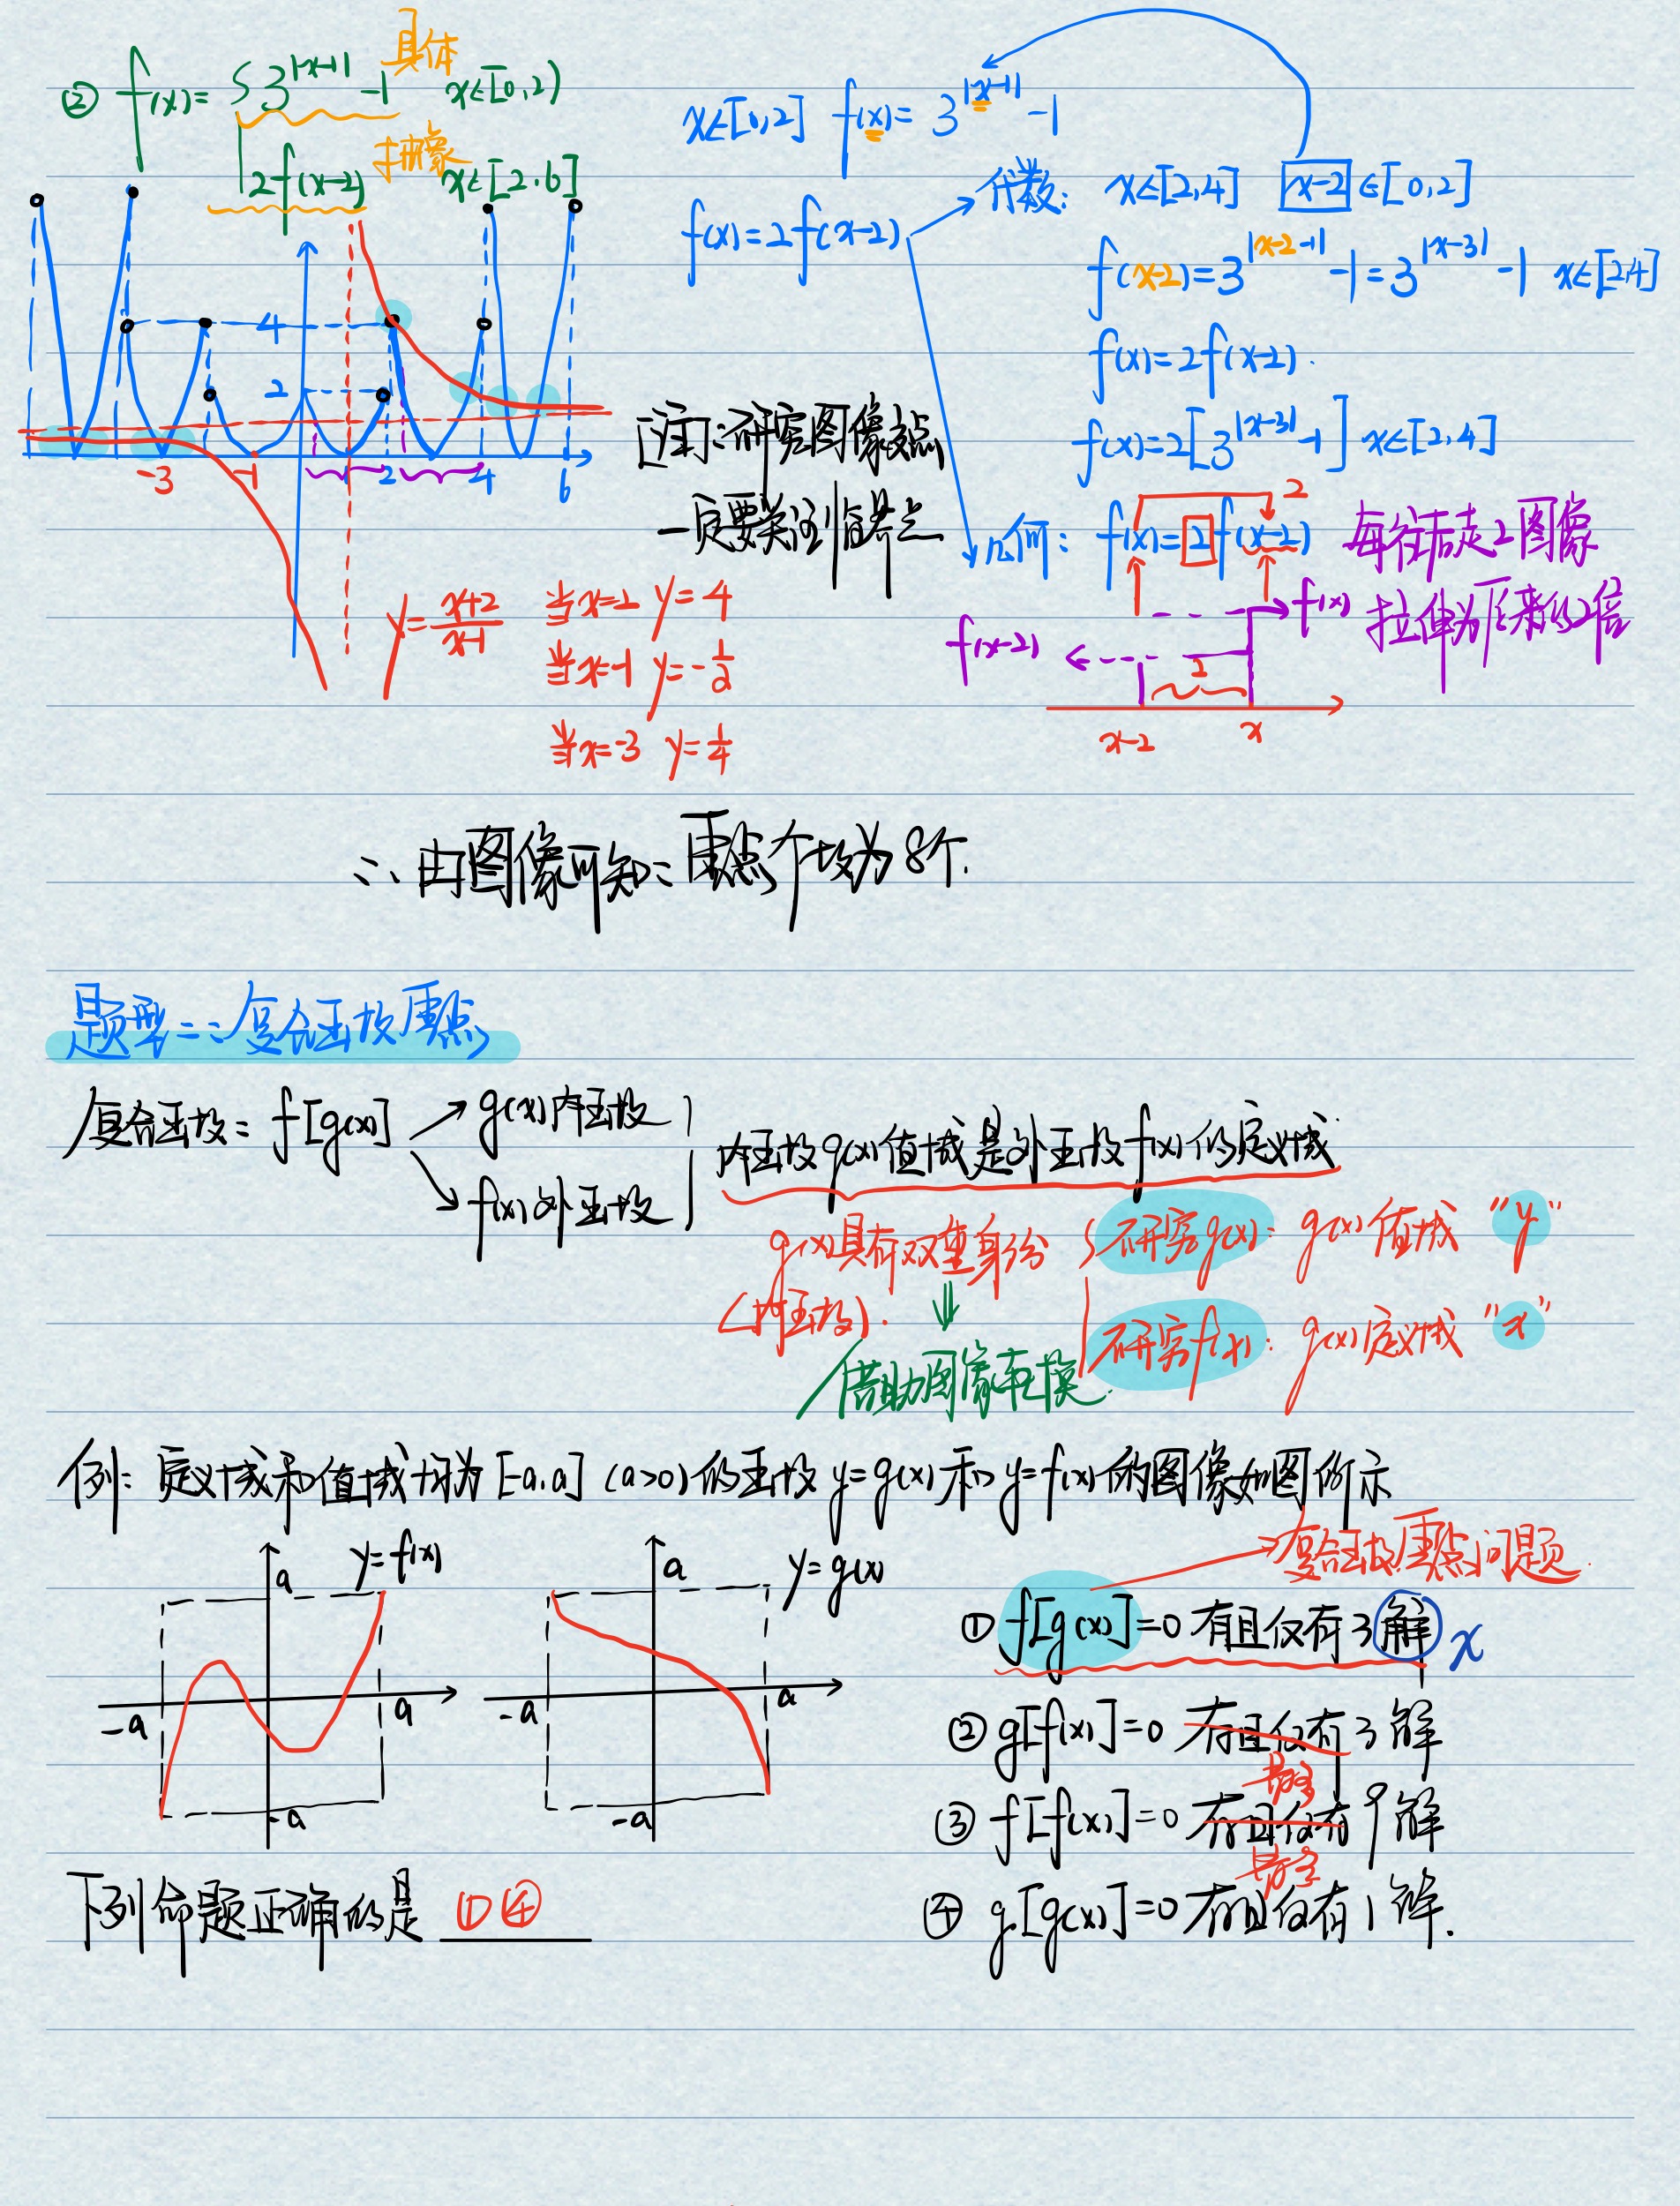 ② f(x)= { 3^|x-1| -1 x∈[0,2)
具体
2f(x-2) x∈[2,6]
抽象
4
2
-3 -1 2 4 6
y=(x+2)/(x-1)
当x=2 y=4
当x=-1 y=-1/2
当x=-3 y=1/4
[注]:研究图像交点
一定要关注临界点
x∈[0,2] f(x)=3^|x-1| -1
f(x)=2f(x-2)
代数: x∈[2,4] x-2∈[0,2]
f(x-2)=3^|x-2-1| -1=3^|x-3| -1 x∈[2,4]
f(x)=2f(x-2).
f(x)=2[3^|x-3| -1] x∈[2,4]
2
几何: f(x)=2f(x-2) 每往后走2图像
拉伸为原来的2倍
f(x)
f(x-2)
2
x-2 x
∴由图像可知:零点个数为8个.
题型二:复合函数零点
复合函数: f[g(x)]
g(x)内函数
f(x)外函数
内函数g(x)值域是外函数f(x)的定义域
g(x)具有双重身份
(内函数).
研究g(x): g(x)值域 "y"
研究f(x): g(x)定义域 "x"
借助图像转换.
例: 定义域和值域均为[-a,a] (a>0)的函数y=g(x)和y=f(x)的图像如图所示
y=f(x)
a
-a a
-a
y=g(x)
a
-a a
-a
复合函数零点问题.
① f[g(x)]=0 有且仅有3解 x
② g[f(x)]=0 有且仅有3解
③ f[f(x)]=0 有且仅有9解
④ g[g(x)]=0 有且仅有1解.
下列命题正确的是 ①④